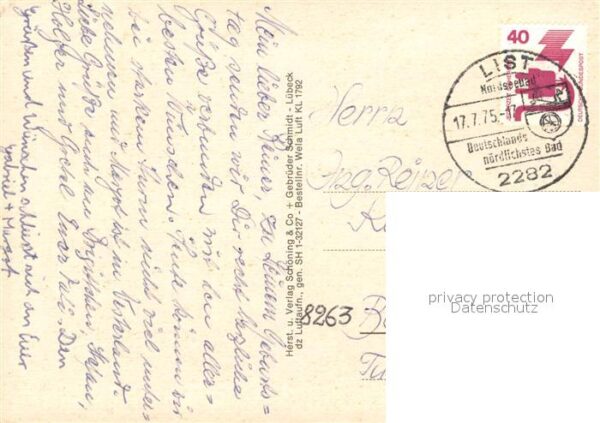 Mein lieber Reiner, zu Deinem Geburts=
tag senden wir Dir recht herzliche
Grüße verbunden mit den aller=
besten Wünschen. Heute können wir
bei starkem Sturm nicht viel unter=
nehmen und Margot ist in Westerland.
Liebe Grüße auch an Brigittchen, Stefan,
Holger und Gretel Euer Vati. Den
Grüßen und Wünschen schliesst sich an Eure
Gabriel + Margot
Herst. u. Verlag Schöning & Co + Gebrüder Schmidt - Lübeck
dz Luftaufn., gen. SH 1-32127 - Bestellnr. Wela Luft KL 1792
40
DEUTSCHE BUNDESPOST
LIST
Nordseebad
17.7.75.-17
Deutschlands
nördlichstes Bad
2282
Herrn
Ing. Reiner
8263
privacy protection
Datenschutz